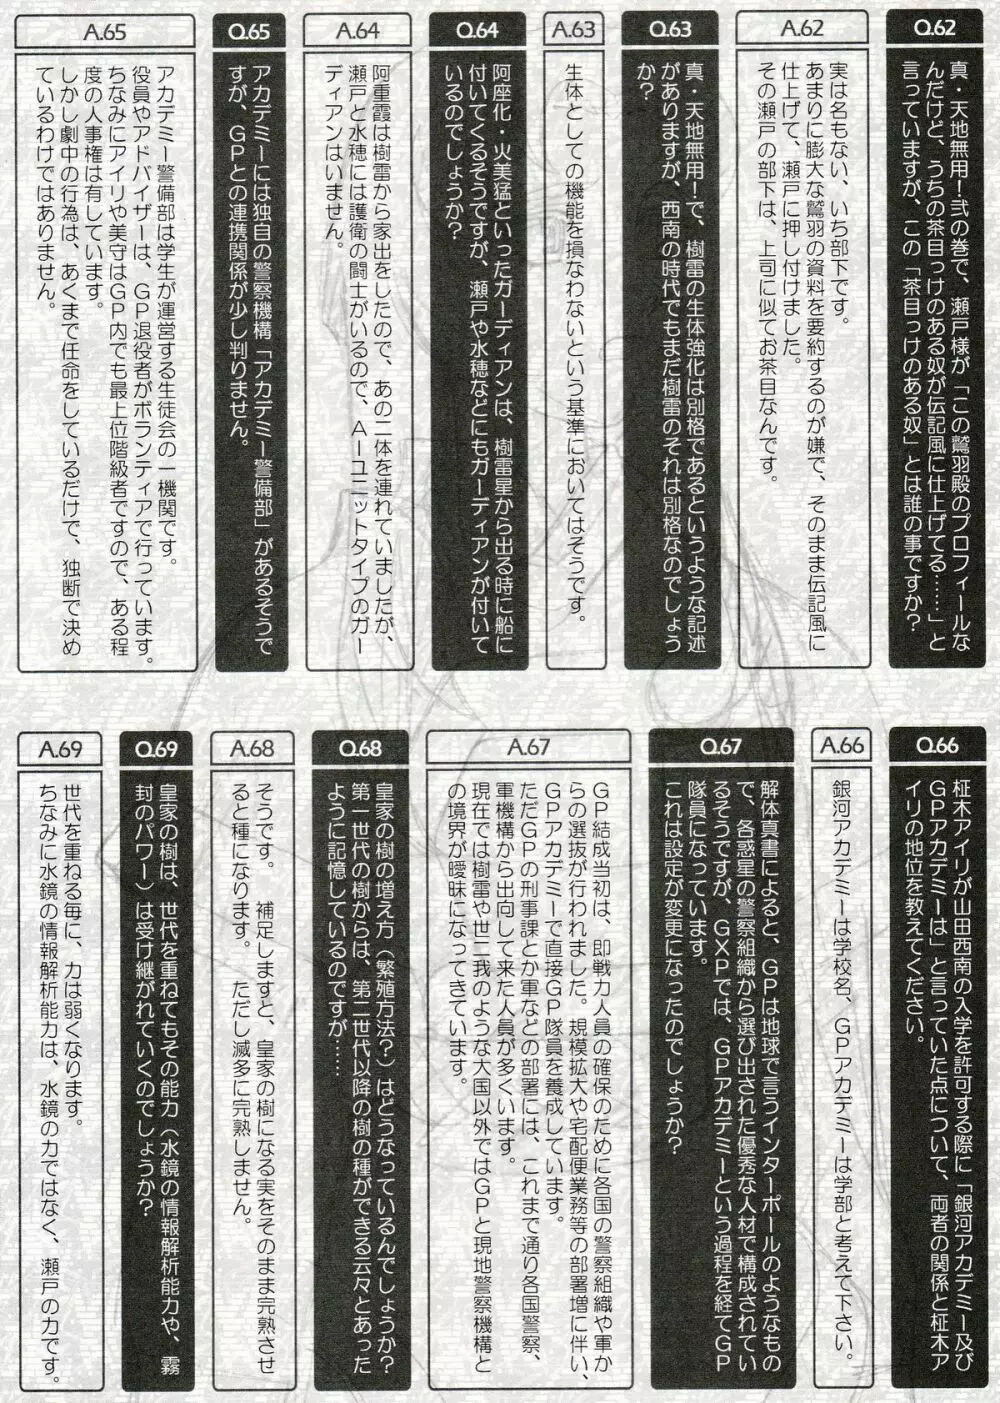 Q.62
真・天地無用！弐の巻で、瀬戸様が「この鷲羽殿のプロフィールな
んだけど、うちの茶目っけのある奴が伝記風に仕上げてる……」と
言っていますが、この「茶目っけのある奴」とは誰の事ですか？
A.62
実は名もない、いち部下です。
あまりに膨大な鷲羽の資料を要約するのが嫌で、そのまま伝記風に
仕上げて、瀬戸に押し付けました。
その瀬戸の部下は、上司に似てお茶目なんです。
Q.63
真・天地無用！で、樹雷の生体強化は別格であるというような記述
がありますが、西南の時代でもまだ樹雷のそれは別格なのでしょう
か？
A.63
生体としての機能を損なわないという基準においてはそうです。
Q.64
阿座化・火美猛といったガーディアンは、樹雷星から出る時に船に
付いてくるそうですが、瀬戸や水穂などにもガーディアンが付いて
いるのでしょうか？
A.64
阿重霞は樹雷から家出をしたので、あの二体を連れていましたが、
瀬戸と水穂には護衛の闘士がいるので、Ａ－ユニットタイプのガー
ディアンはいません。
Q.65
アカデミーには独自の警察機構「アカデミー警備部」があるそうで
すが、ＧＰとの連携関係が少し判りません。
A.65
アカデミー警備部は学生が運営する生徒会の一機関です。
役員やアドバイザーは、ＧＰ退役者がボランティアで行っています。
ちなみにアイリや美守はＧＰ内でも最上位階級者ですので、ある程
度の人事権は有しています。
しかし劇中の行為は、あくまで任命をしているだけで、独断で決め
ているわけではありません。
Q.66
柾木アイリが山田西南の入学を許可する際に「銀河アカデミー及び
ＧＰアカデミーは」と言っていた点について、両者の関係と柾木ア
イリの地位を教えてください。
A.66
銀河アカデミーは学校名、ＧＰアカデミーは学部と考えて下さい。
Q.67
解体真書によると、ＧＰは地球で言うインターポールのようなもの
で、各惑星の警察組織から選び出された優秀な人材で構成されてい
るそうですが、ＧＸＰでは、ＧＰアカデミーという過程を経てＧＰ
隊員になっています。
これは設定が変更になったのでしょうか？
A.67
ＧＰ結成当初は、即戦力人員の確保のために各国の警察組織や軍か
らの選抜が行われました。規模拡大や宅配便業務等の部署増に伴い、
ＧＰアカデミーで直接ＧＰ隊員を養成しています。
ただＧＰの刑事課とか軍などの部署には、これまで通り各国警察、
軍機構から出向して来た人員が多くいます。
現在では樹雷や世二我のような大国以外ではＧＰと現地警察機構と
の境界が曖昧になってきています。
Q.68
皇家の樹の増え方（繁殖方法？）はどうなっているんでしょうか？
第一世代の樹からは、第二世代以降の樹の種ができる云々とあった
ように記憶しているのですが……
A.68
そうです。　補足しますと、皇家の樹になる実をそのまま完熟させ
ると種になります。　ただし滅多に完熟しません。
Q.69
皇家の樹は、世代を重ねてもその能力（水鏡の情報解析能力や、霧
封のパワー）は受け継がれていくのでしょうか？
A.69
世代を重ねる毎に、力は弱くなります。
ちなみに水鏡の情報解析能力は、水鏡の力ではなく、瀬戸の力です。